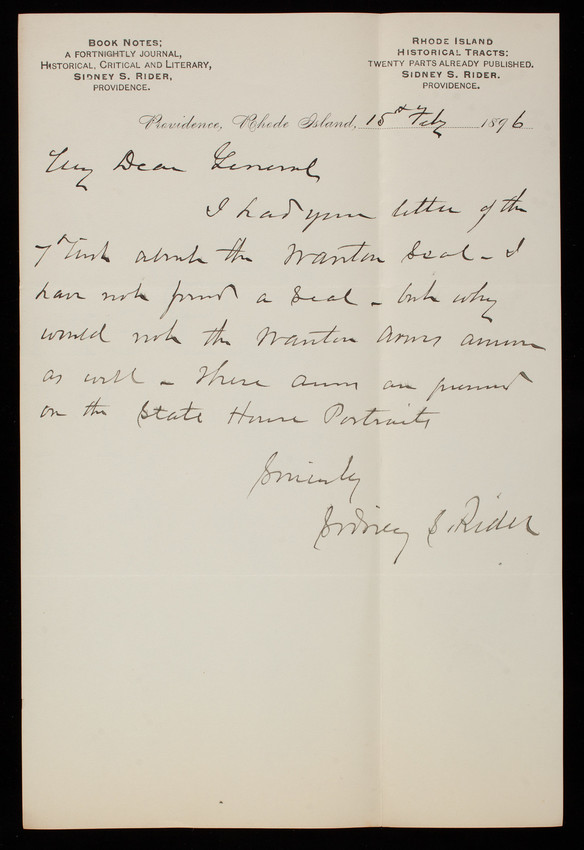 BOOK NOTES;
A FORTNIGHTLY JOURNAL,
HISTORICAL, CRITICAL AND LITERARY,
SIDNEY S. RIDER,
PROVIDENCE.
RHODE ISLAND
HISTORICAL TRACTS:
TWENTY PARTS ALREADY PUBLISHED.
SIDNEY S. RIDER.
PROVIDENCE.
Providence, Rhode Island, 15th Feby 1896
My Dear General
I had your letter of the
7th inst about the Wanton Seal - I
have not found a Seal - but why
would not the Wanton arms answer
as well - These arms are
on the State House Portraits
Sincerely
Sidney S. Rider